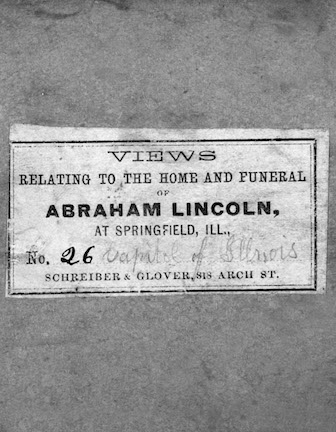 VIEWS
RELATING TO THE HOME AND FUNERAL
OF
ABRAHAM LINCOLN,
AT SPRINGFIELD, ILL.,
No. 26 Capitol of Illinois
SCHREIBER & GLOVER, 818 ARCH ST.